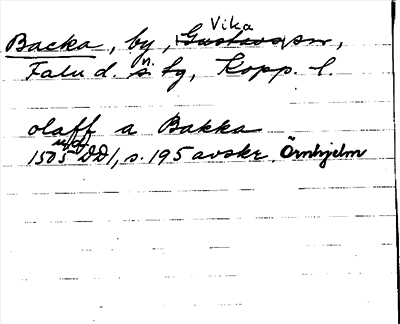 Backa, by, Vika sn,
Falu d. n. tg, Kopp. l.
olaff a Bakka
1505 DD1, s. 195 avskr. Örnhjelm